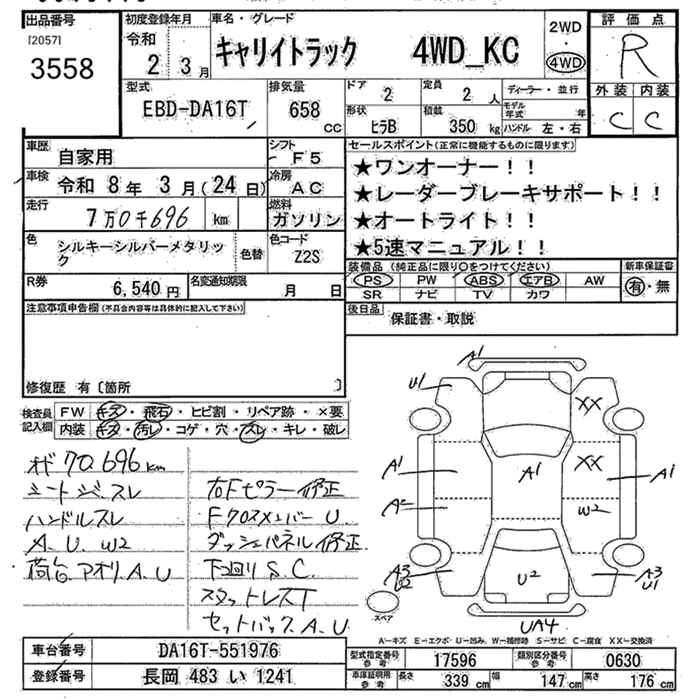 出品番号
[2057]
3558
初度登録年月
令和
2 3月
車名・グレード
キャリイトラック 4WD_KC
2WD
・
4WD
評価点
R
外装 内装
C C
型式
EBD-DA16T
排気量
658
cc
ドア
2
形状
ヒラB
定員
2 人
積載
350 kg
ディーラー・並行
モデル年式 年
ハンドル 左・右
車歴
自家用
シフト
F5
車検
令和 8年 3月(24日)
冷房
AC
走行
7万0千696 km
燃料
ガソリン
色
シルキーシルバーメタリック
色替
色コード
Z2S
R券
6,540 円
名変通知期限
月 日
セールスポイント(正常に機能するものに限ります)
★ワンオーナー!!
★レーダーブレーキサポート!!
★オートライト!!
★5速マニュアル!!
装備品(純正品に限り○をつけてください)
PS PW ABS エアB AW
SR ナビ TV カワ
新車保証書
有・無
後日品
保証書・取説
注意事項申告欄(不具合内容等は具体的に記入して下さい)
修復歴 有〔箇所 〕
検査員
記入欄
FW キズ・飛石・ヒビ割・リペア跡・×要
内装 キズ・汚レ・コゲ・穴・スレ・キレ・破レ
オド70,696km
シートシミ、スレ
ハンドルスレ
A.U.W2
荷台アオリ.A.U
右Fピラー修正
FクロスメンバーU.
ダッシュパネル修正
下回りS.C.
スタットレスT
セットバックA.U
A1
U1
XX
A1
A1
XX
A1
A2
W2
A3
U2
U2
A3
U1
UA4
スペア
A-キズ E-エクボ U-凹み W-補修跡 S-サビ C-腐食 XX-交換済
車台番号
DA16T-551976
登録番号
長岡 483 い 1241
型式指定番号
参考
17596
類別区分番号
参考
0630
車庫証明用
参考
長さ
339 cm
幅
147 cm
高さ
176 cm